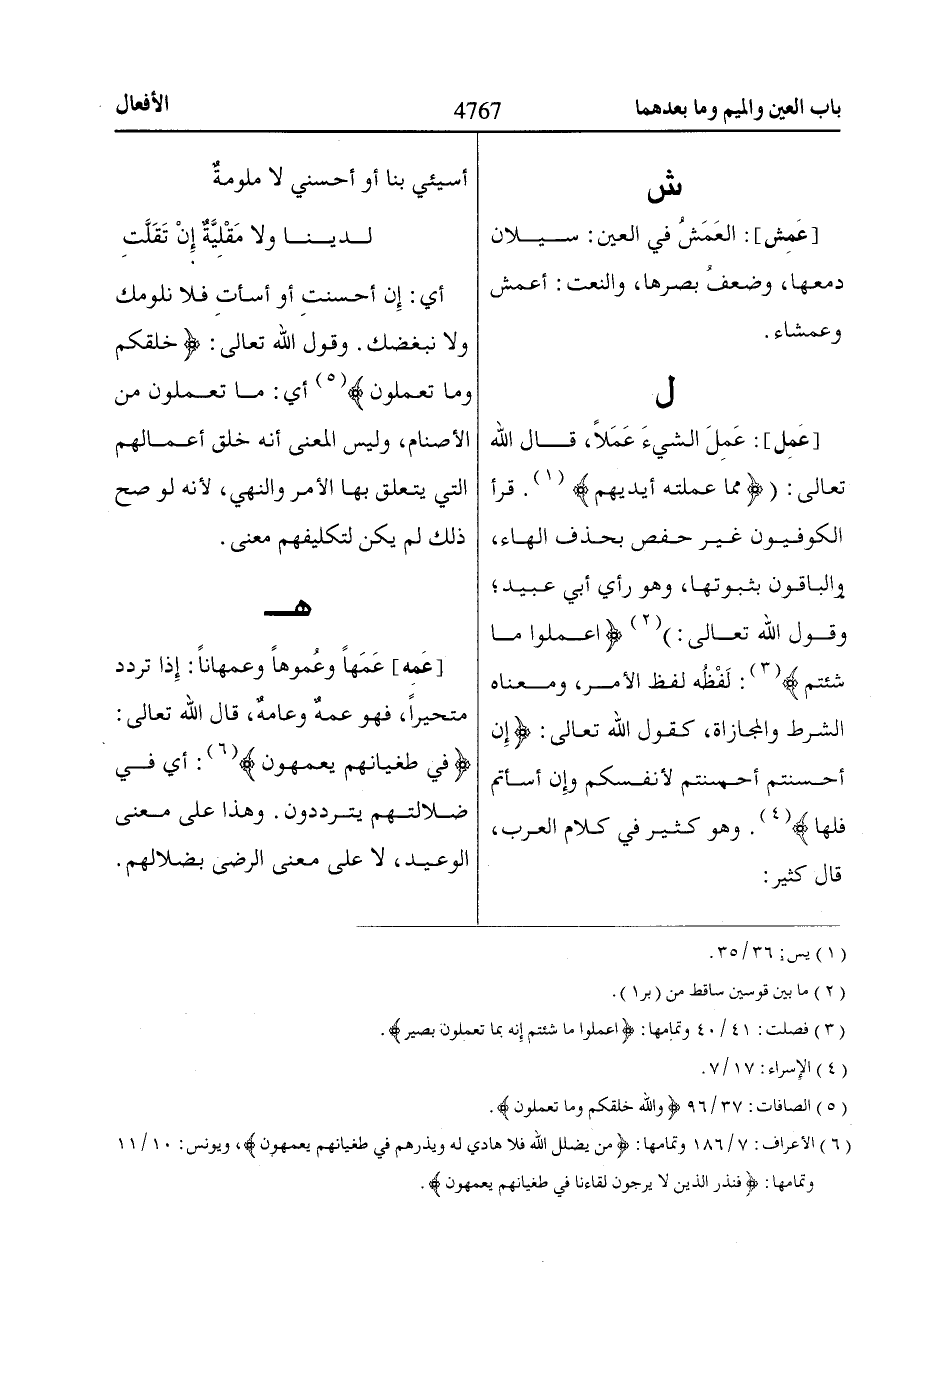 باب العين والميم وما بعدهما
4767
الأفعال
ش
[عَمِش]: العَمَشُ في العين: سيلان
دمعها، وضعفُ بصرها، والنعت: أعمش
وعمشاء.
ل
[عَمِل]: عَمِلَ الشيءَ عَمَلاً، قال الله
تعالى: (﴿مما عملته أيديهم﴾(١). قرأ
الكوفيون غير حفص بحذف الهاء،
والباقون بثبوتها، وهو رأي أبي عبيد؛
وقول الله تعالى:)(٢) ﴿اعملوا ما
شئتم﴾(٣): لَفْظُه لفظ الأمر، ومعناه
الشرط والمجازاة، كقول الله تعالى: ﴿إن
أحسنتم أحسنتم لأنفسكم وإن أسأتم
فلها﴾(٤). وهو كثير في كلام العرب،
قال كثير:
أسيئي بنا أو أحسني لا ملومةٌ
لدينا ولا مَقْلِيَّةٌ إنْ تَقَلَّتِ
أي: إن أحسنتِ أو أسأتِ فلا نلومك
ولا نبغضك. وقول الله تعالى: ﴿خلقكم
وما تعملون﴾(٥) أي: ما تعملون من
الأصنام، وليس المعنى أنه خلق أعمالهم
التي يتعلق بها الأمر والنهي، لأنه لو صح
ذلك لم يكن لتكليفهم معنى.
هـ
[عَمِه] عَمَهاً وعُموهاً وعمهاناً: إذا تردد
متحيراً، فهو عمهٌ وعامهٌ، قال الله تعالى:
﴿في طغيانهم يعمهون﴾(٦): أي في
ضلالتهم يترددون. وهذا على معنى
الوعيد، لا على معنى الرضى بضلالهم.
(١) يس: ٣٥/٣٦.
(٢) ما بين قوسين ساقط من (بر١).
(٣) فصلت: ٤٠/٤١ وتمامها: ﴿اعملوا ما شئتم إنه بما تعملون بصير﴾.
(٤) الإسراء: ٧/١٧.
(٥) الصافات: ٩٦/٣٧ ﴿والله خلقكم وما تعملون﴾.
(٦) الأعراف: ١٨٦/٧ وتمامها: ﴿من يضلل الله فلا هادي له ويذرهم في طغيانهم يعمهون﴾، ويونس: ١١/١٠
وتمامها: ﴿فنذر الذين لا يرجون لقاءنا في طغيانهم يعمهون﴾.